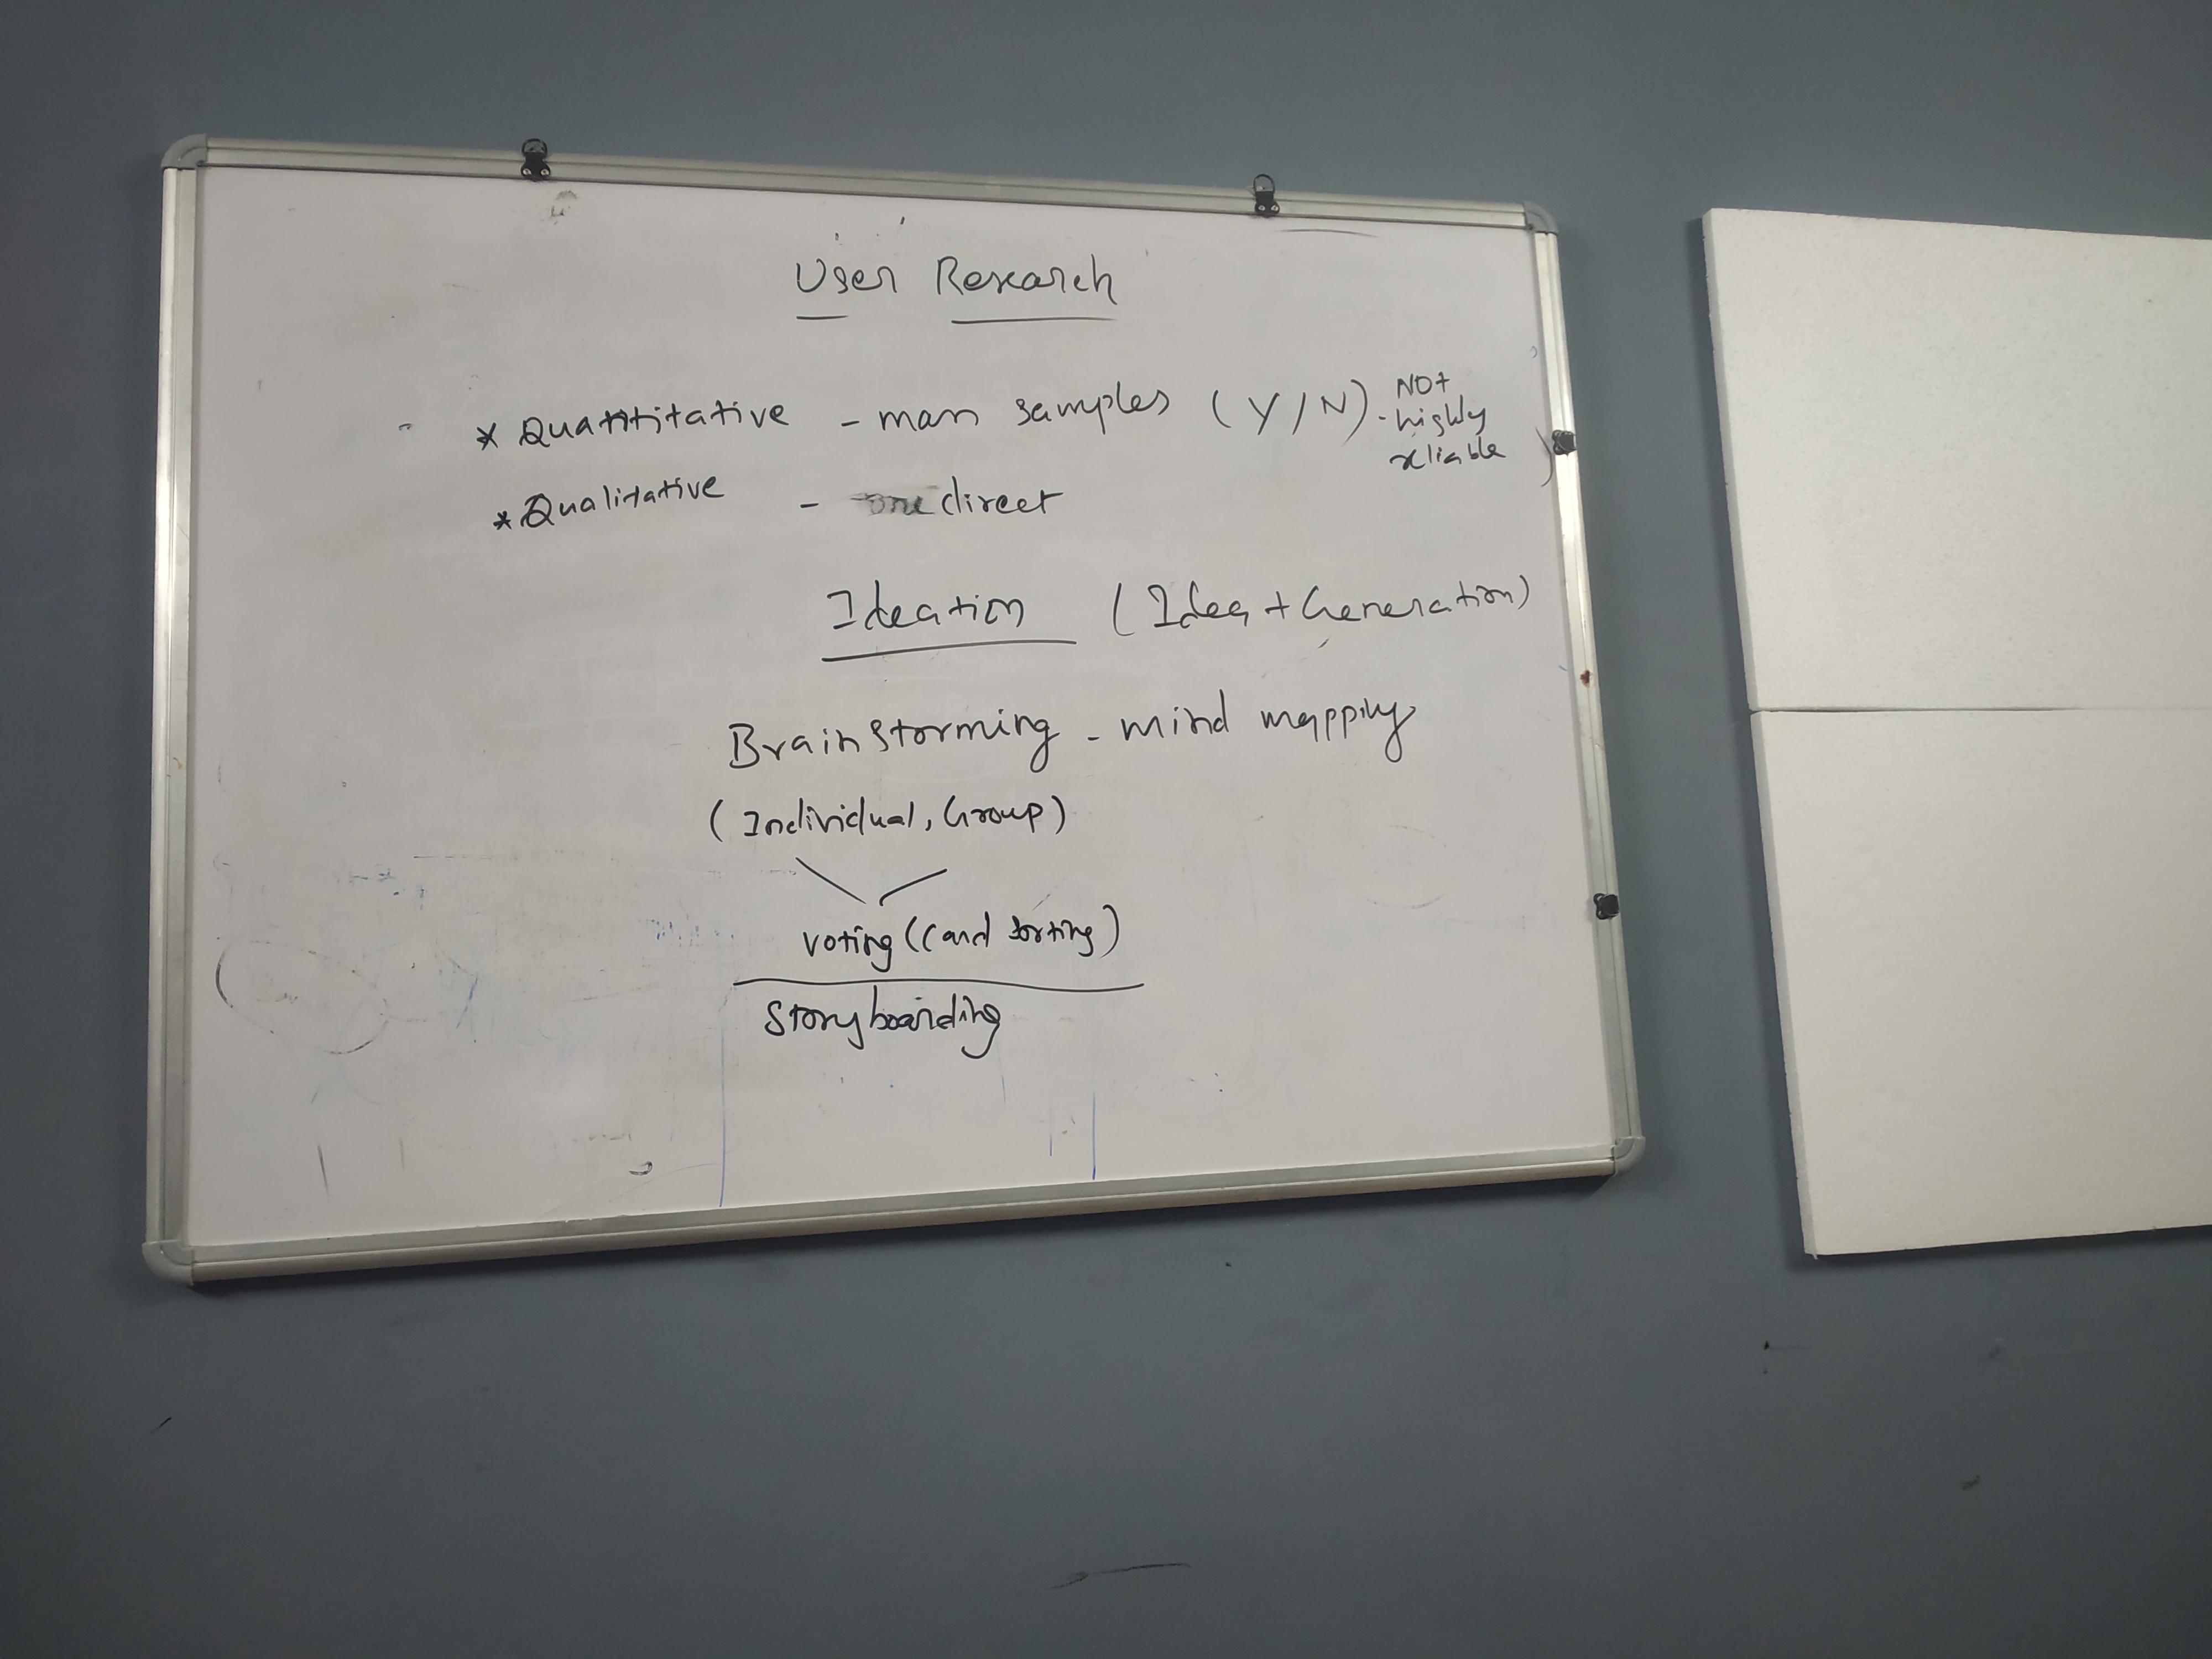 User Research
* Quantitative - mass samples (Y/N) - NOT highly reliable
* Qualitative - direct
Ideation (Idea + Generation)
Brainstorming - mind mapping
(Individual, Group)
voting (Card sorting)
Storyboarding